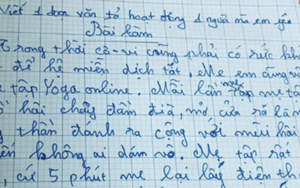 Viết 1 đoạn văn tả hoạt động 1 người mà em yêu
Bài làm
Trong thời cô-vi cũng phải có sức khỏ
để hệ miễn dịch tốt. Mẹ em cũng v
tập Yoga online. Mỗi lần mẹ tập mẹ to
hồi chảy đầm đìa, mở cửa ra làm
thần đành ra cong vớt mùi hôi
không ai dám vô. Mẹ tập rất
cứ 5 phút mẹ lại lấy điện th